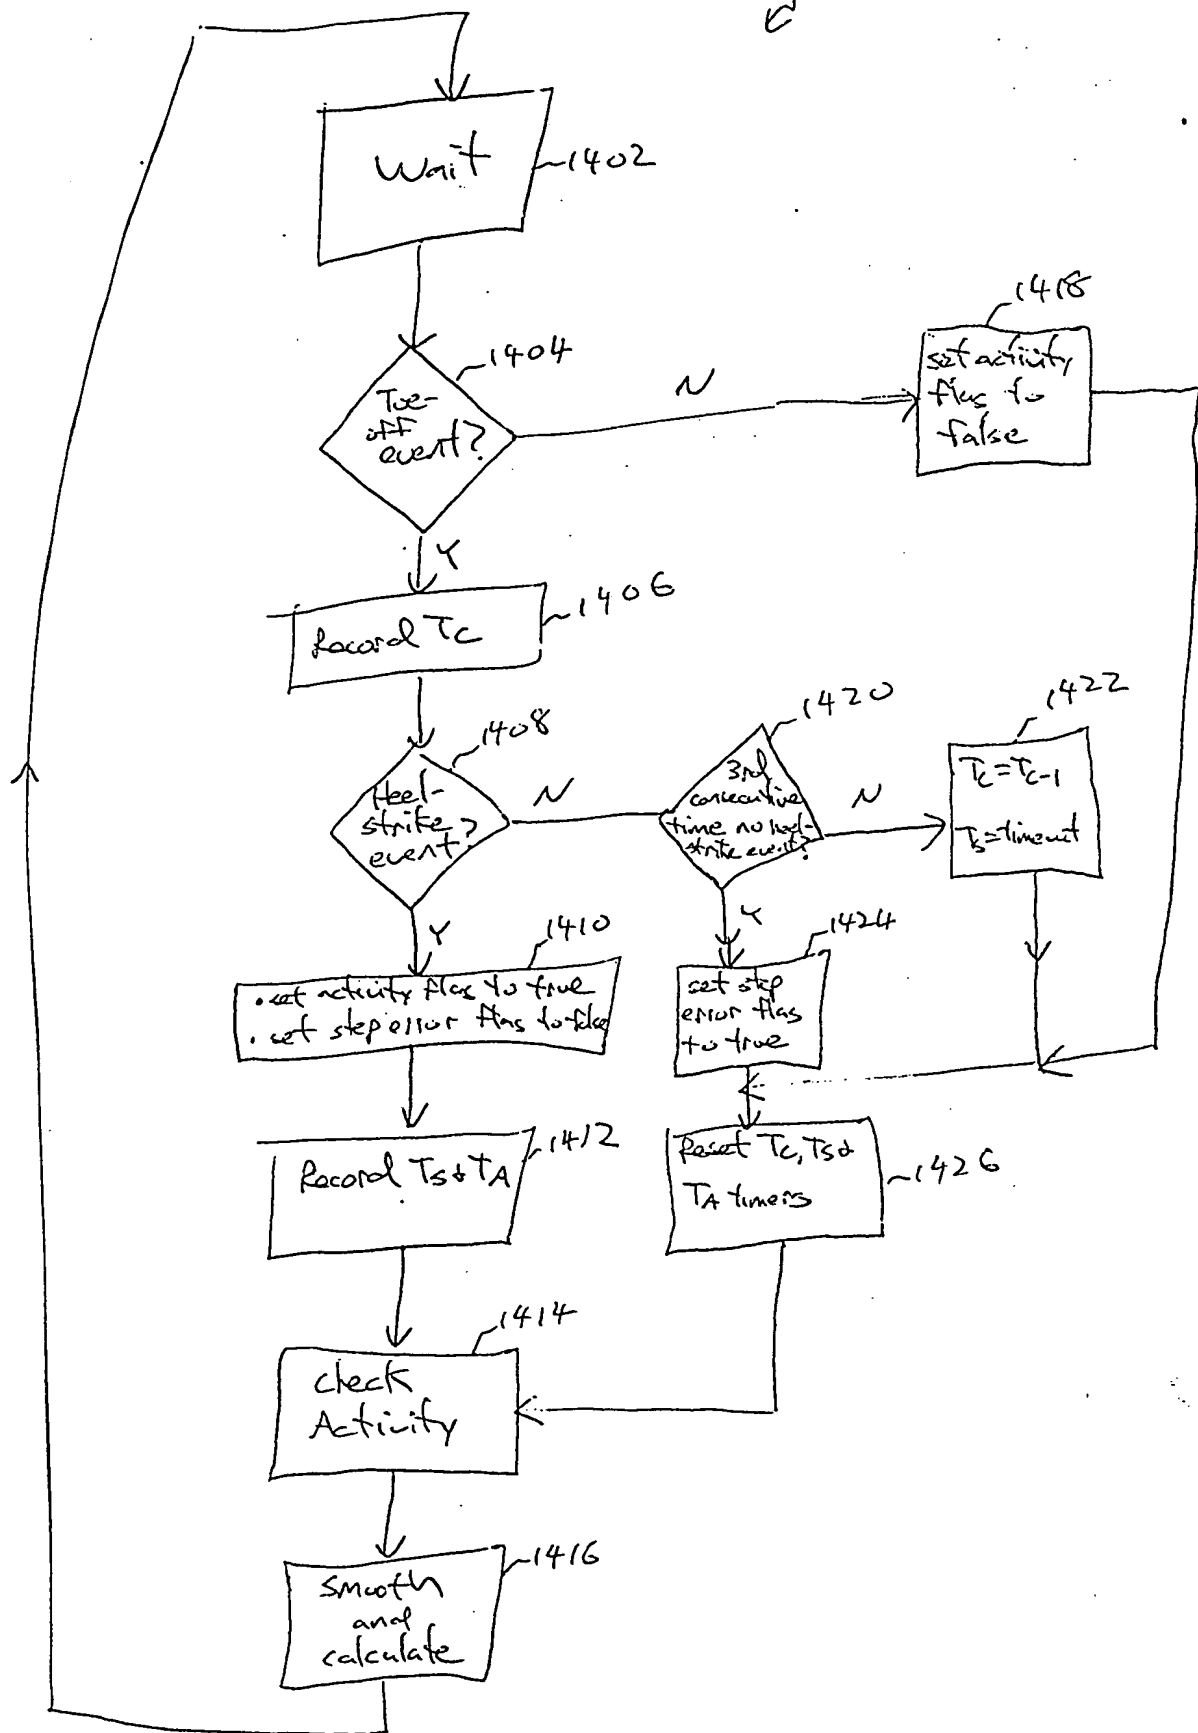 Wait
1402
1418
set activity
flag to
false
1404
Toe-
off
event?
N
Y
1406
Record Tc
1408
Heel-
strike
event?
N
1420
3rd
consecutive
time no heel-
strike event?
N
1422
Tc=Tc-1
Ts=timeout
Y
1410
. set activity flag to true
. set step error flag to false
Y
1424
set step
error flag
to true
1412
Record Ts & TA
Reset Tc, Ts &
TA timers
1426
1414
check
Activity
1416
smooth
and
calculate